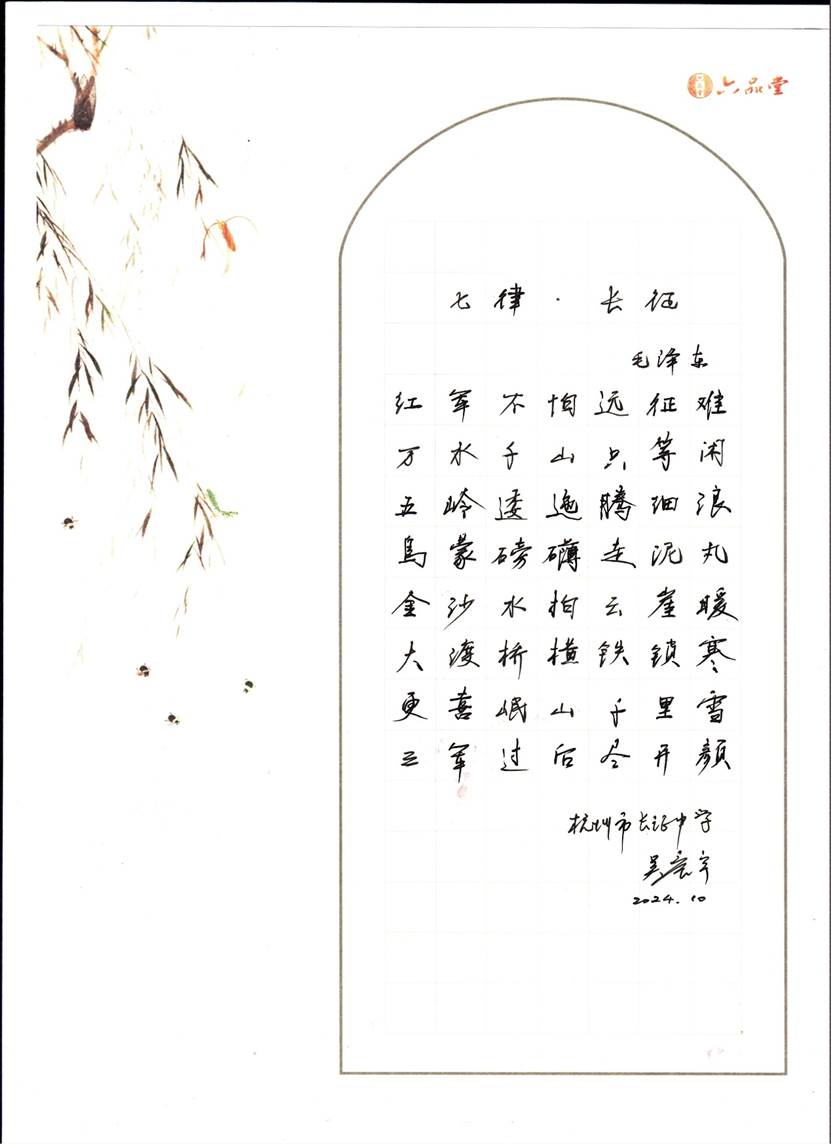 六品堂
七律·长征
毛泽东
红军不怕远征难
万水千山只等闲
五岭逶迤腾细浪
乌蒙磅礴走泥丸
金沙水拍云崖暖
大渡桥横铁锁寒
更喜岷山千里雪
三军过后尽开颜
杭州市长征中学
吴
2024.10